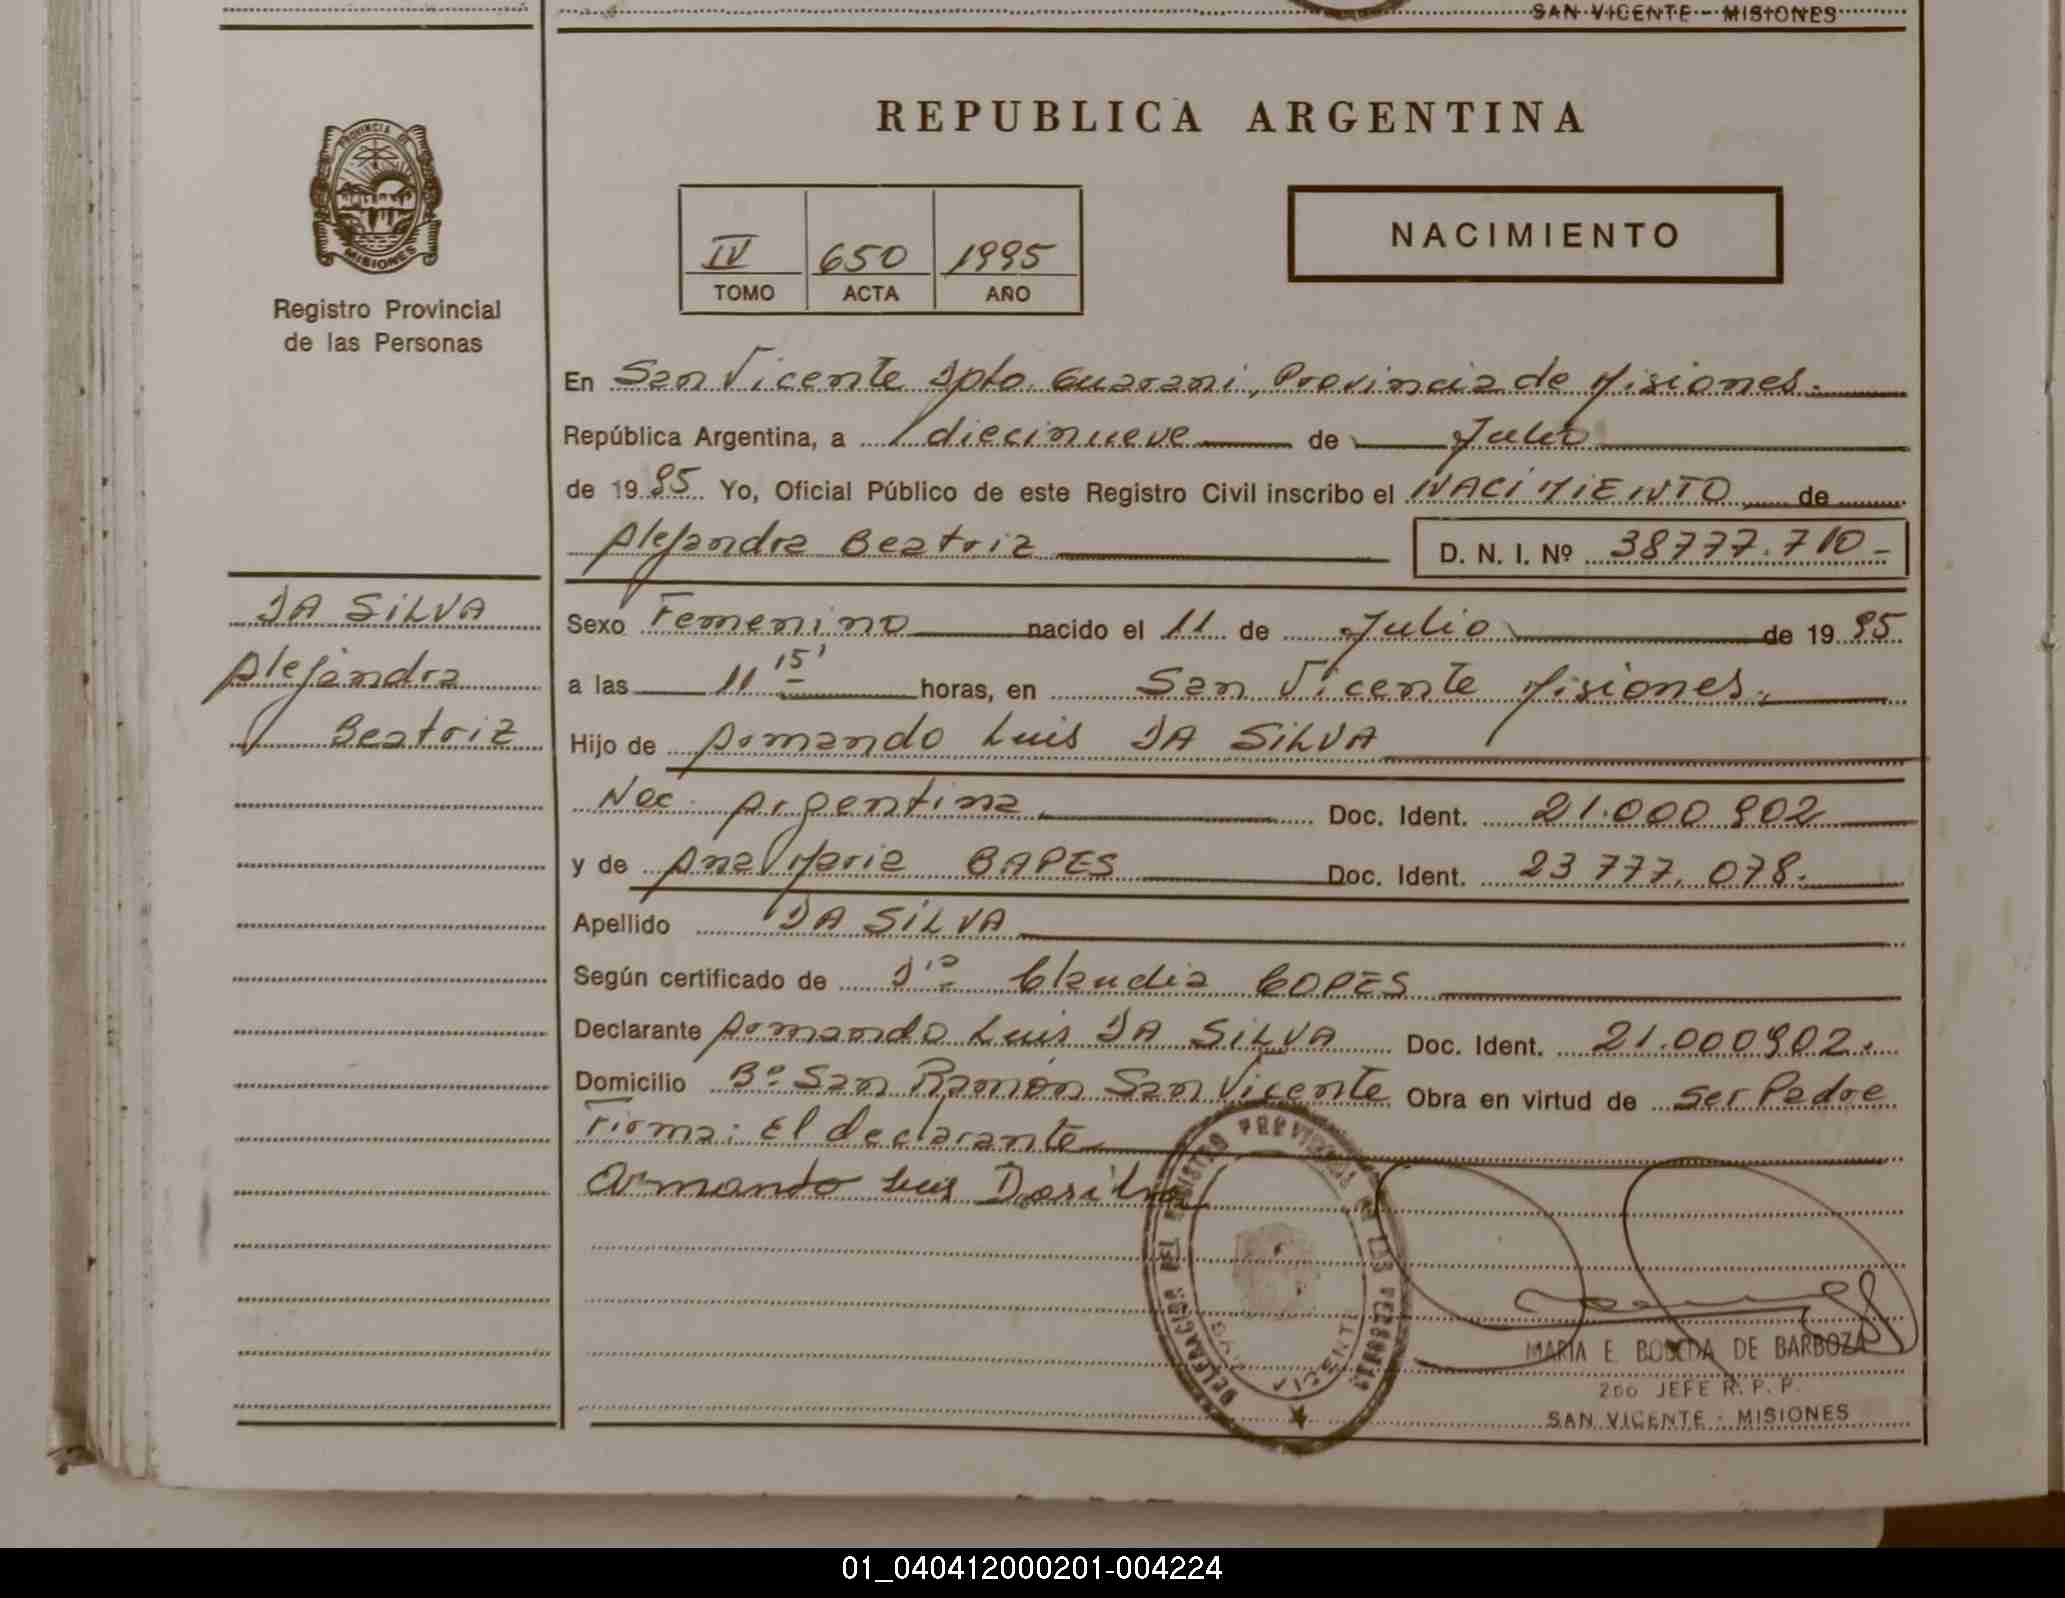 SAN VICENTE - MISIONES
PROVINCIA DE
MISIONES
Registro Provincial
de las Personas
REPUBLICA ARGENTINA
IV 650 1995
TOMO ACTA AÑO
NACIMIENTO
En San Vicente Dpto. Guarani, Provincia de Misiones.
República Argentina, a diecinueve de Julio
de 1995 Yo, Oficial Público de este Registro Civil inscribo el NACIMIENTO de
Alejandra Beatriz D. N. I. Nº 38777.710-
DA SILVA
Alejandra
Beatriz
Sexo Femenino nacido el 11 de Julio de 1995
a las 11 15' horas, en San Vicente Misiones.
Hijo de Armando Luis DA SILVA
Nac. Argentina Doc. Ident. 21.000 902
y de Ana Maria BAPES Doc. Ident. 23 777. 078.
Apellido DA SILVA
Según certificado de Dra Claudia COPES
Declarante Armando Luis DA SILVA Doc. Ident. 21.000902.
Domicilio Bº San Ramón San Vicente Obra en virtud de ser Padre
Firma: El declarante
Armando Luis Dasilva
DELEGACION DEL REGISTRO PROVINCIAL DE LAS PERSONAS
VICENTE
MARIA E. BOBEDA DE BARBOZA
2DO JEFE R. P. P.
SAN VICENTE - MISIONES
01_040412000201-004224